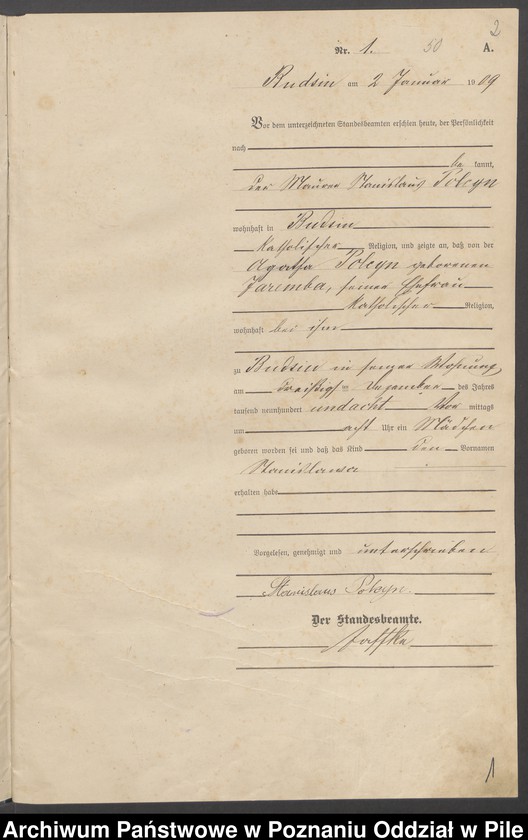 2
Nr. 1. 50 A.
Budsin am 2 Januar 1909
Vor dem unterzeichneten Standesbeamten erschien heute, der Persönlichkeit
nach
be kannt,
der Maurer Stanislaus Polcyn
wohnhaft in Budsin
katholischer Religion, und zeigte an, daß von der
Agatha Polcyn geborenen
Jaremba, seiner Ehefrau
katholischer Religion,
wohnhaft bei ihm
zu Budsin in seiner Wohnung,
am dreißigsten Dezember des Jahres
tausend neunhundert undacht Vor mittags
um acht Uhr ein Mädchen
geboren worden sei und daß das Kind den Vornamen
Stanislawa
erhalten habe
Vorgelesen, genehmigt und unterschrieben
Stanislaus Polcyn.
Der Standesbeamte.
1
Archiwum Państwowe w Poznaniu Oddział w Pile